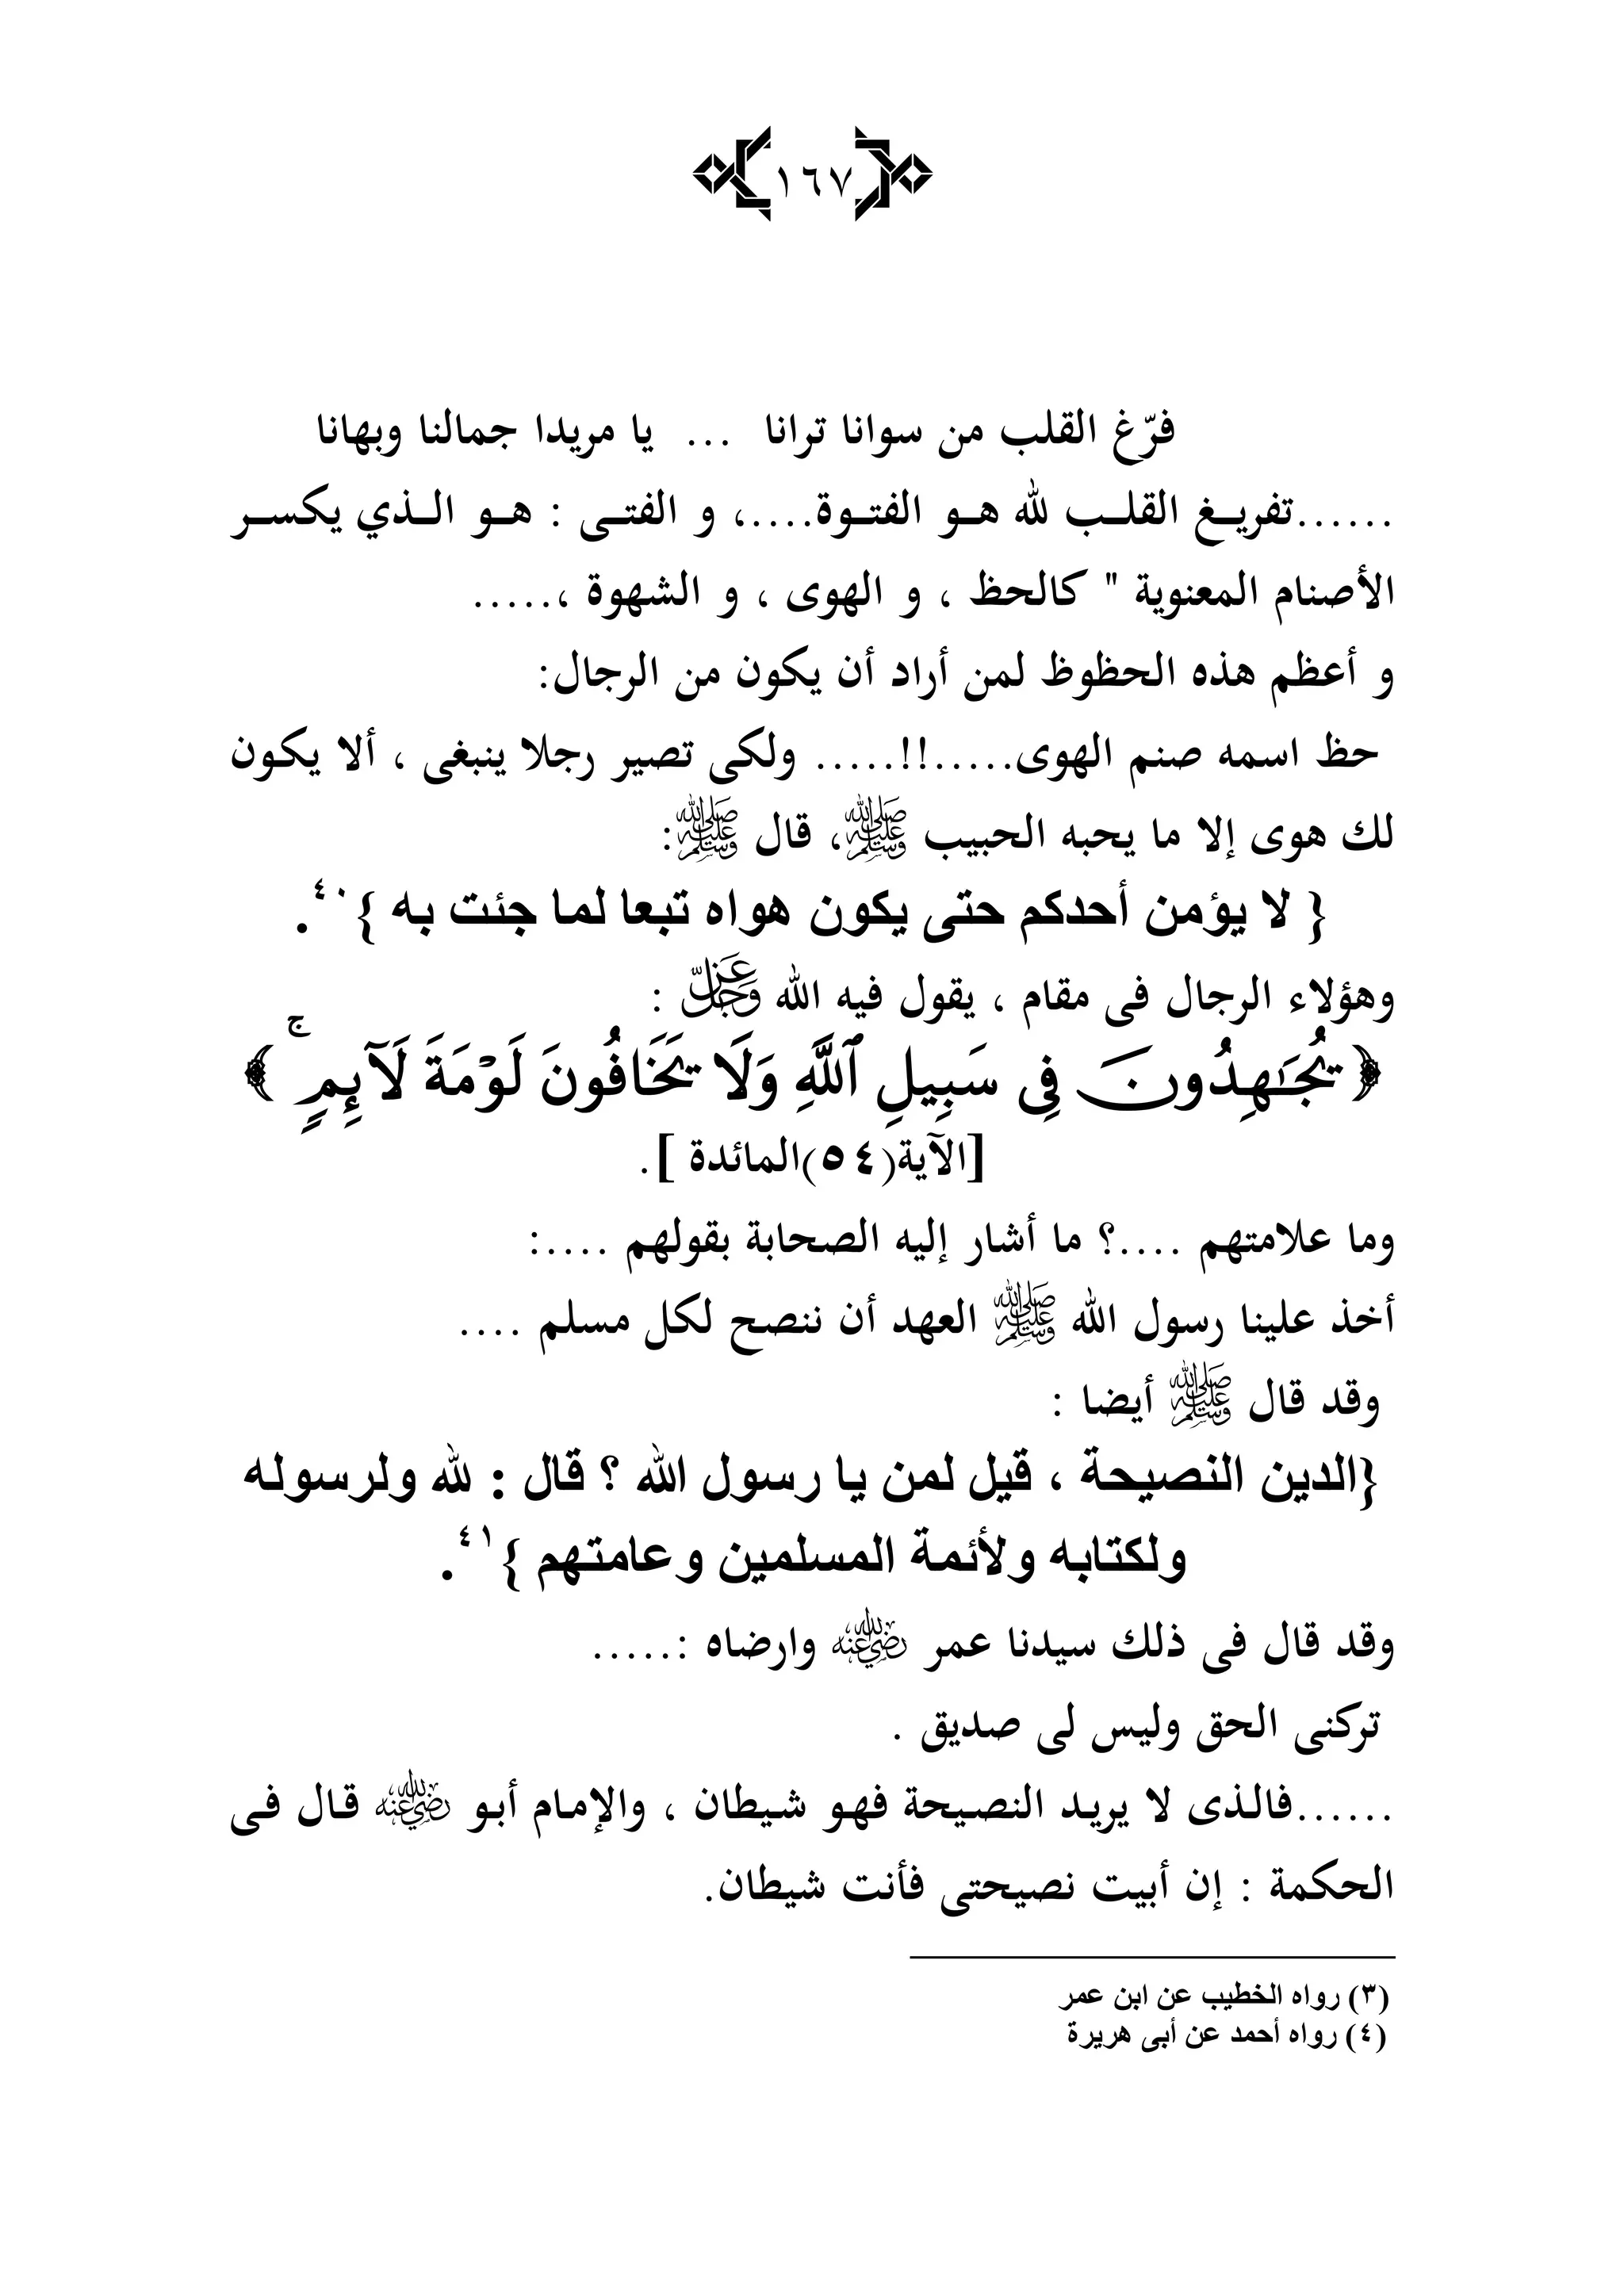 ١٦٧
فرّغ القلب من سوانا ترانا ... يا مريدا جمالنا وبهانا
......تفريغ القلب لله هو الفتوة....، و الفتى : هو الذي يكسر
الأصنام المعنوية " كالحظ ، و الهوى ، و الشهوة ،.....
و أعظم هذه الحظوظ لمن أراد أن يكون من الرجال:
حظ اسمه صنم الهوى.....!!..... ولكى تصير رجلا ينبغى ، ألا يكون
لك هوى إلا ما يحبه الحبيب ﷺ، قال ﷺ:
{ لا يؤمن أحدكم حتى يكون هواه تبعا لما جئت به }٤٠.
وهؤلاء الرجال فى مقام ، يقول فيه الله عَزَّ وَجَلَّ :
﴿ يُجَٰهِدُونَ فِى سَبِيلِ ٱللَّهِ وَلَا يَخَافُونَ لَوْمَةَ لَآئِمٍ ۚ ﴾
[الآية(٥٤)المائدة ].
وما علامتهم ....؟ ما أشار إليه الصحابة بقولهم ....:
أخذ علينا رسول الله ﷺ العهد أن ننصح لكل مسلم ....
وقد قال ﷺ أيضا :
{الدين النصيحة ، قيل لمن يا رسول الله ؟ قال : لله ولرسوله
ولكتابه ولأئمة المسلمين وعامتهم }٤١.
وقد قال فى ذلك سيدنا عمر رضي الله عنه وارضاه :.....
تركنى الحق وليس لى صديق .
......فالذى لا يريد النصيحة فهو شيطان ، والإمام أبو رضي الله عنه قال فى
الحكمة : إن أبيت نصيحتى فأنت شيطان.
(٣) رواه الخطيب عن ابن عمر
(٤) رواه أحمد عن أبى هريرة